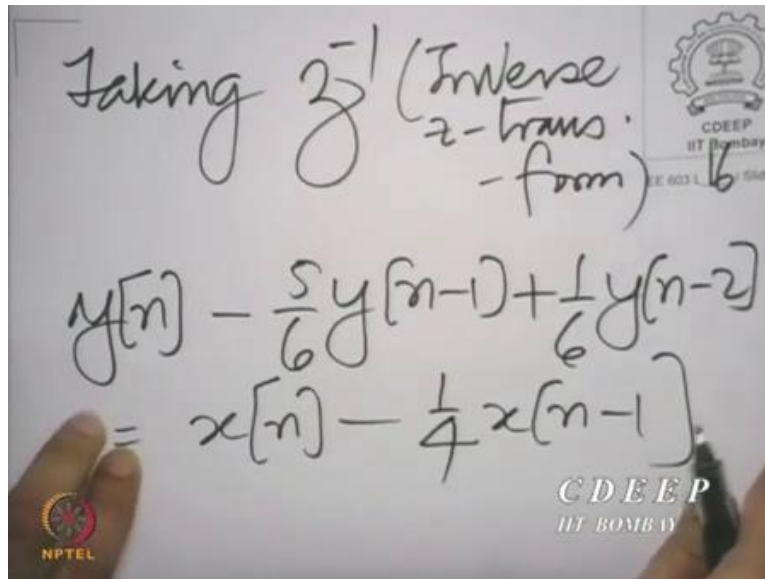 Taking z⁻¹ (Inverse
z-trans.
-form)
CDEEP
IIT Bombay
EE 603 L
16
y[n] - 5/6 y[n-1] + 1/6 y[n-2]
= x[n] - 1/4 x[n-1]
CDEEP
IIT BOMBAY
NPTEL